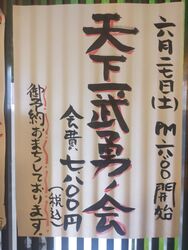 六月二七日(土)PM六:00開始
天下一武勇ノ会
会費七八00円
(税込)
御予約おまちしております